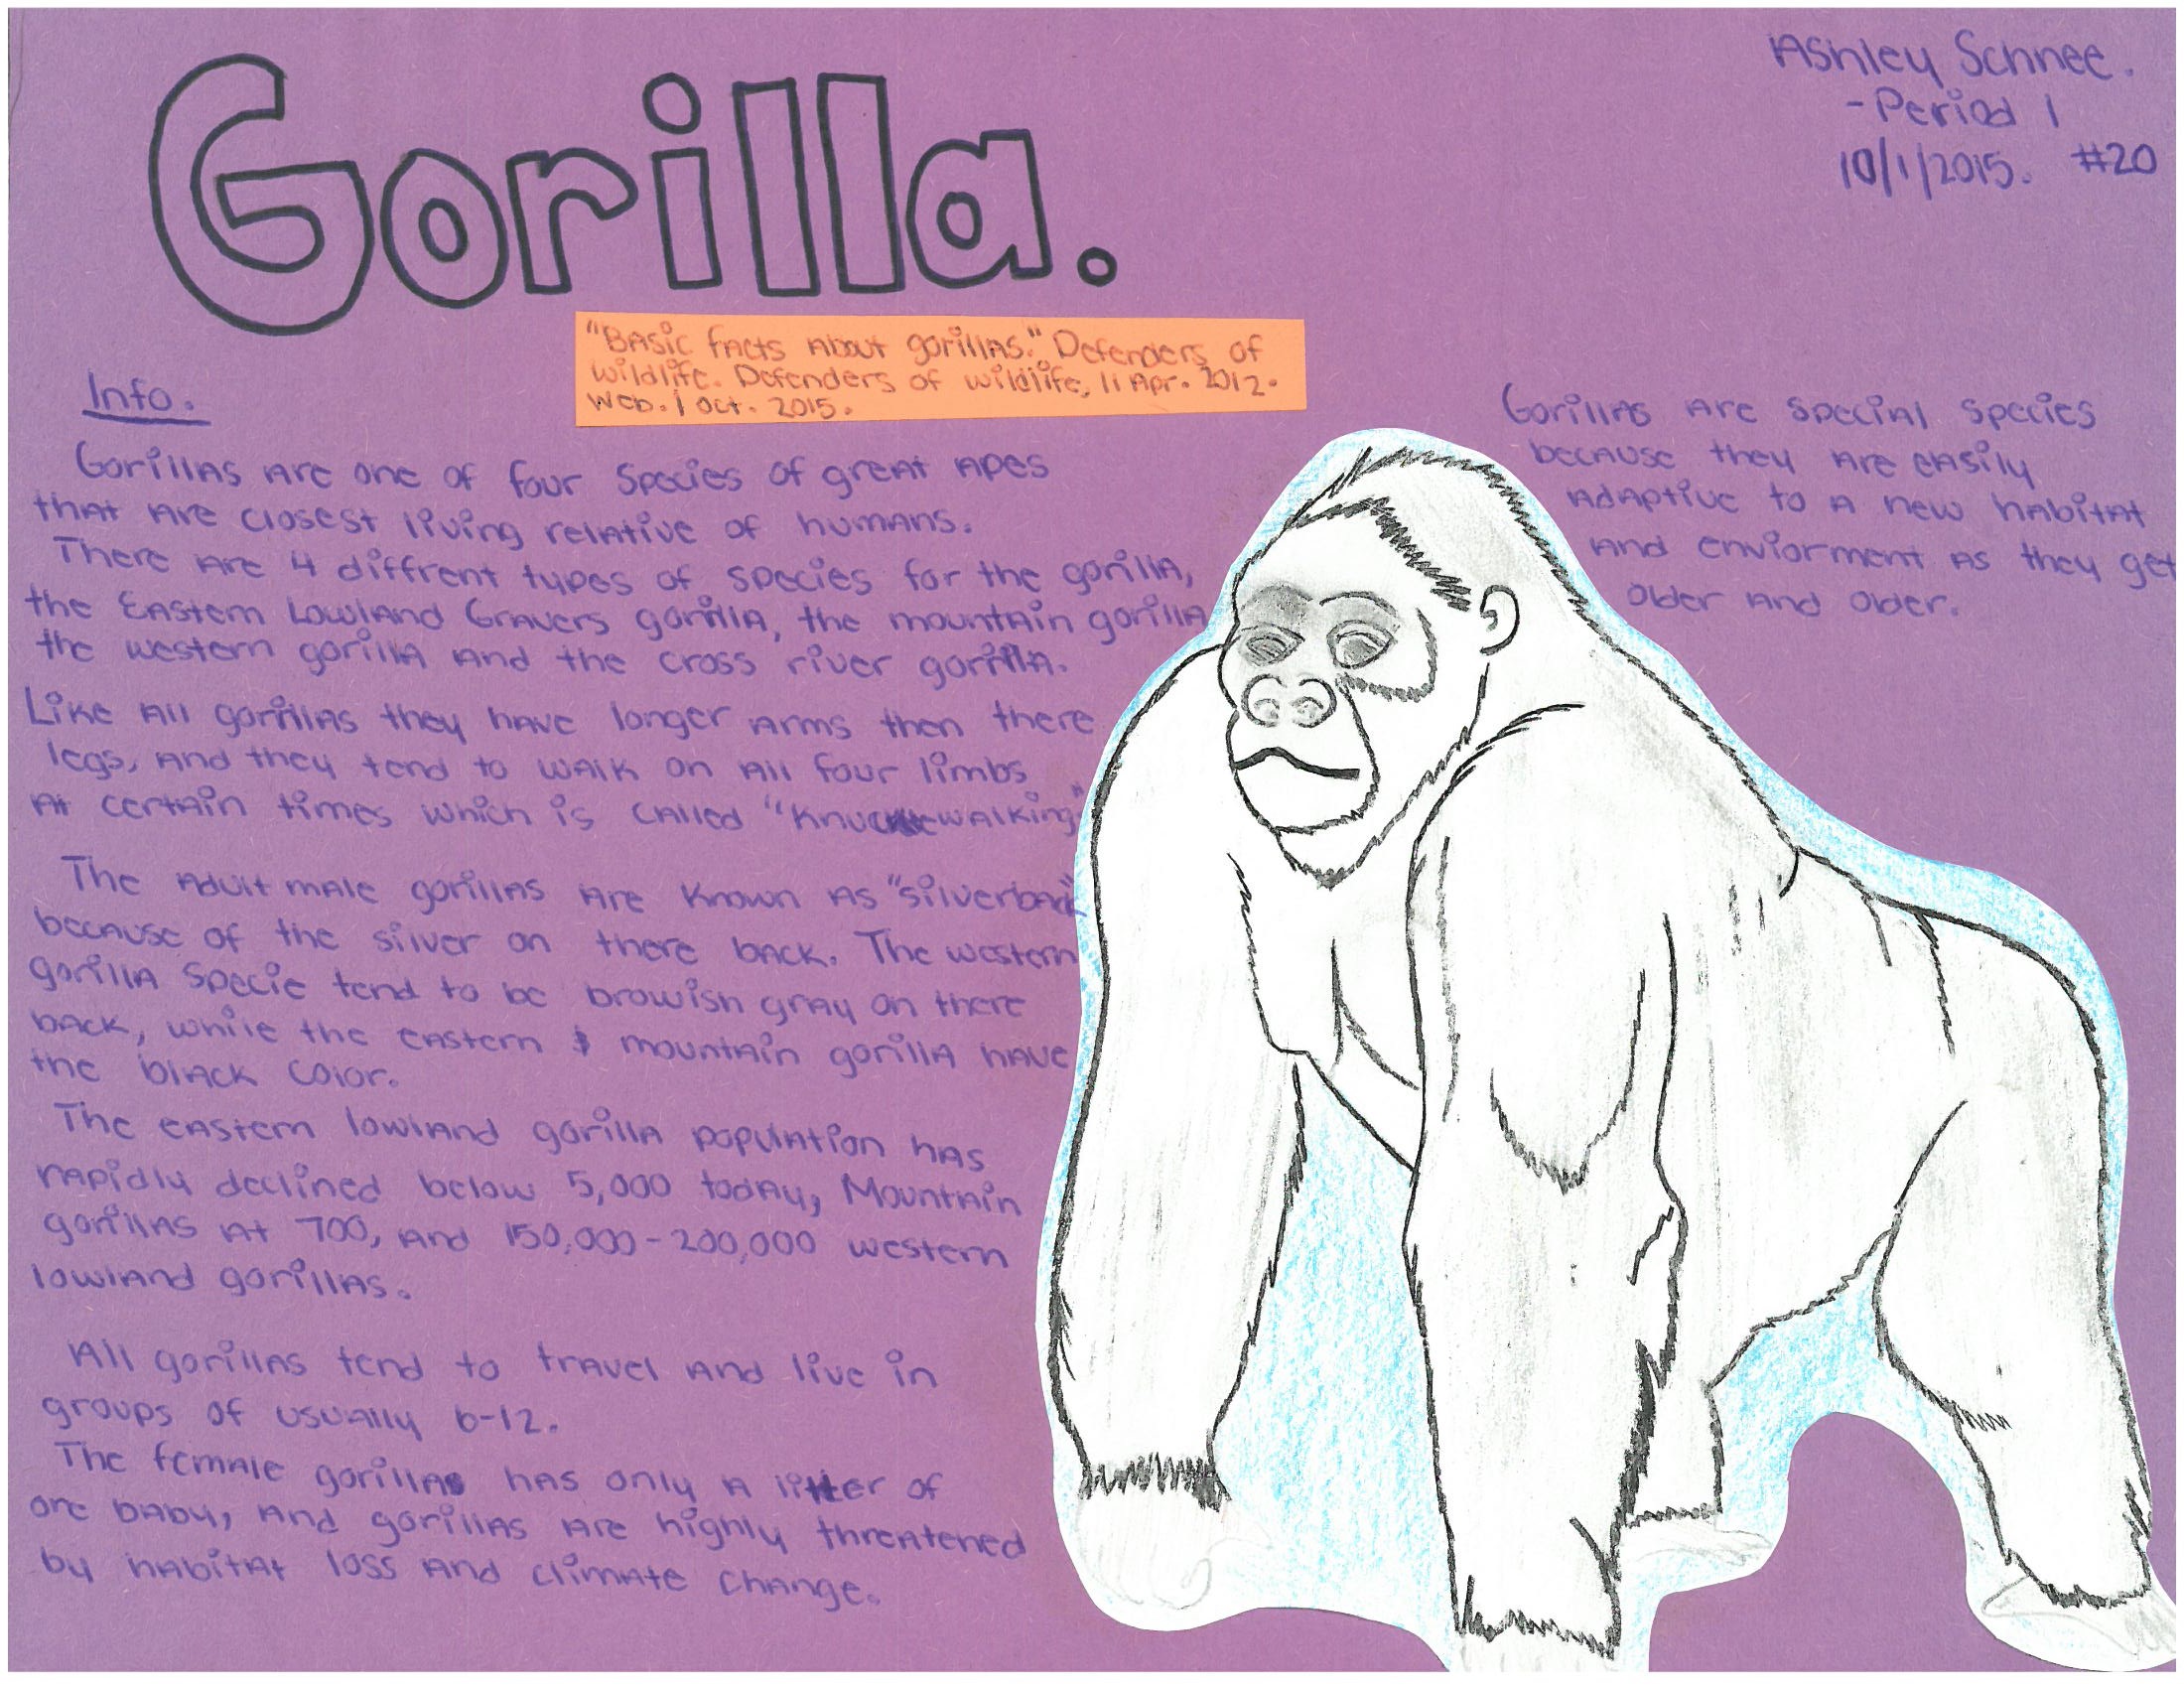 Gorilla.
Ashley Schnee.
- Period 1
10/1/2015. #20
"Basic facts about gorillas." Defenders of
wildlife. Defenders of wildlife, 11 Apr. 2012.
Web. 1 Oct. 2015.
Info.
Gorillas are one of four species of great apes
that are closest living relative of humans.
There are 4 diffrent types of species for the gorilla,
the Eastern Lowland Gravers gorilla, the mountain gorilla
the western gorilla and the cross river gorilla.
Like all gorillas they have longer arms then there
legs, and they tend to walk on all four limbs
at certain times which is called "knucklewalking"
The adult male gorillas are known as "silverback"
because of the silver on there back. The western
gorilla specie tend to be browish gray on there
back, while the eastern & mountain gorilla have
the black color.
The eastern lowland gorilla population has
rapidly declined below 5,000 today, Mountain
gorillas at 700, and 150,000-200,000 western
lowland gorillas.
All gorillas tend to travel and live in
groups of usually 6-12.
The female gorillas has only a litter of
one baby, and gorillas are highly threatened
by habitat loss and climate change.
Gorillas are special species
because they are easily
adaptive to a new habitat
and enviorment as they get
older and older.